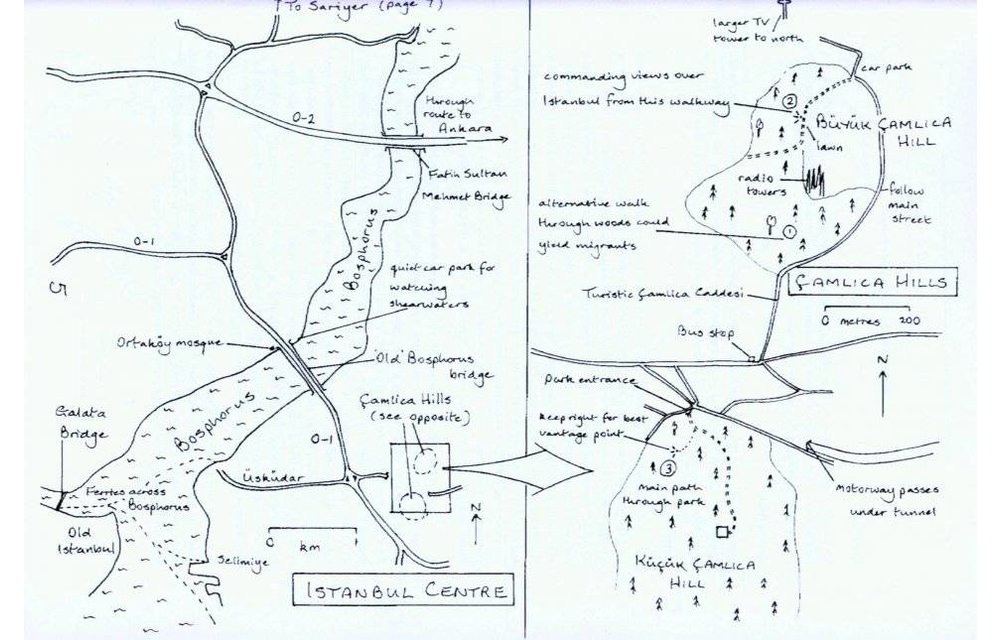 To Sariyer (page 7)
O-2
through
route to
Ankara
Fatih Sultan
Mehmet Bridge
O-1
Bosphorus
quiet car park for
watching
shearwaters
Ortaköy mosque
'Old' Bosphorus
bridge
Galata
Bridge
Bosphorus
Çamlica Hills
(see opposite)
O-1
Üsküdar
Ferries across
Bosphorus
Old
Istanbul
Selimiye
0 km 1
N
ISTANBUL CENTRE
larger TV
tower to north
car park
commanding views over
Istanbul from this walkway
2
BÜYÜK ÇAMLICA
HILL
lawn
radio
towers
follow
main
street
alternative walk
through woods could
yield migrants
1
ÇAMLICA HILLS
Turistic Çamlica Caddesi
0 metres 200
Bus stop
N
Park entrance
keep right for best
vantage point
3
main path
through park
Motorway passes
under tunnel
KÜÇÜK ÇAMLICA
HILL